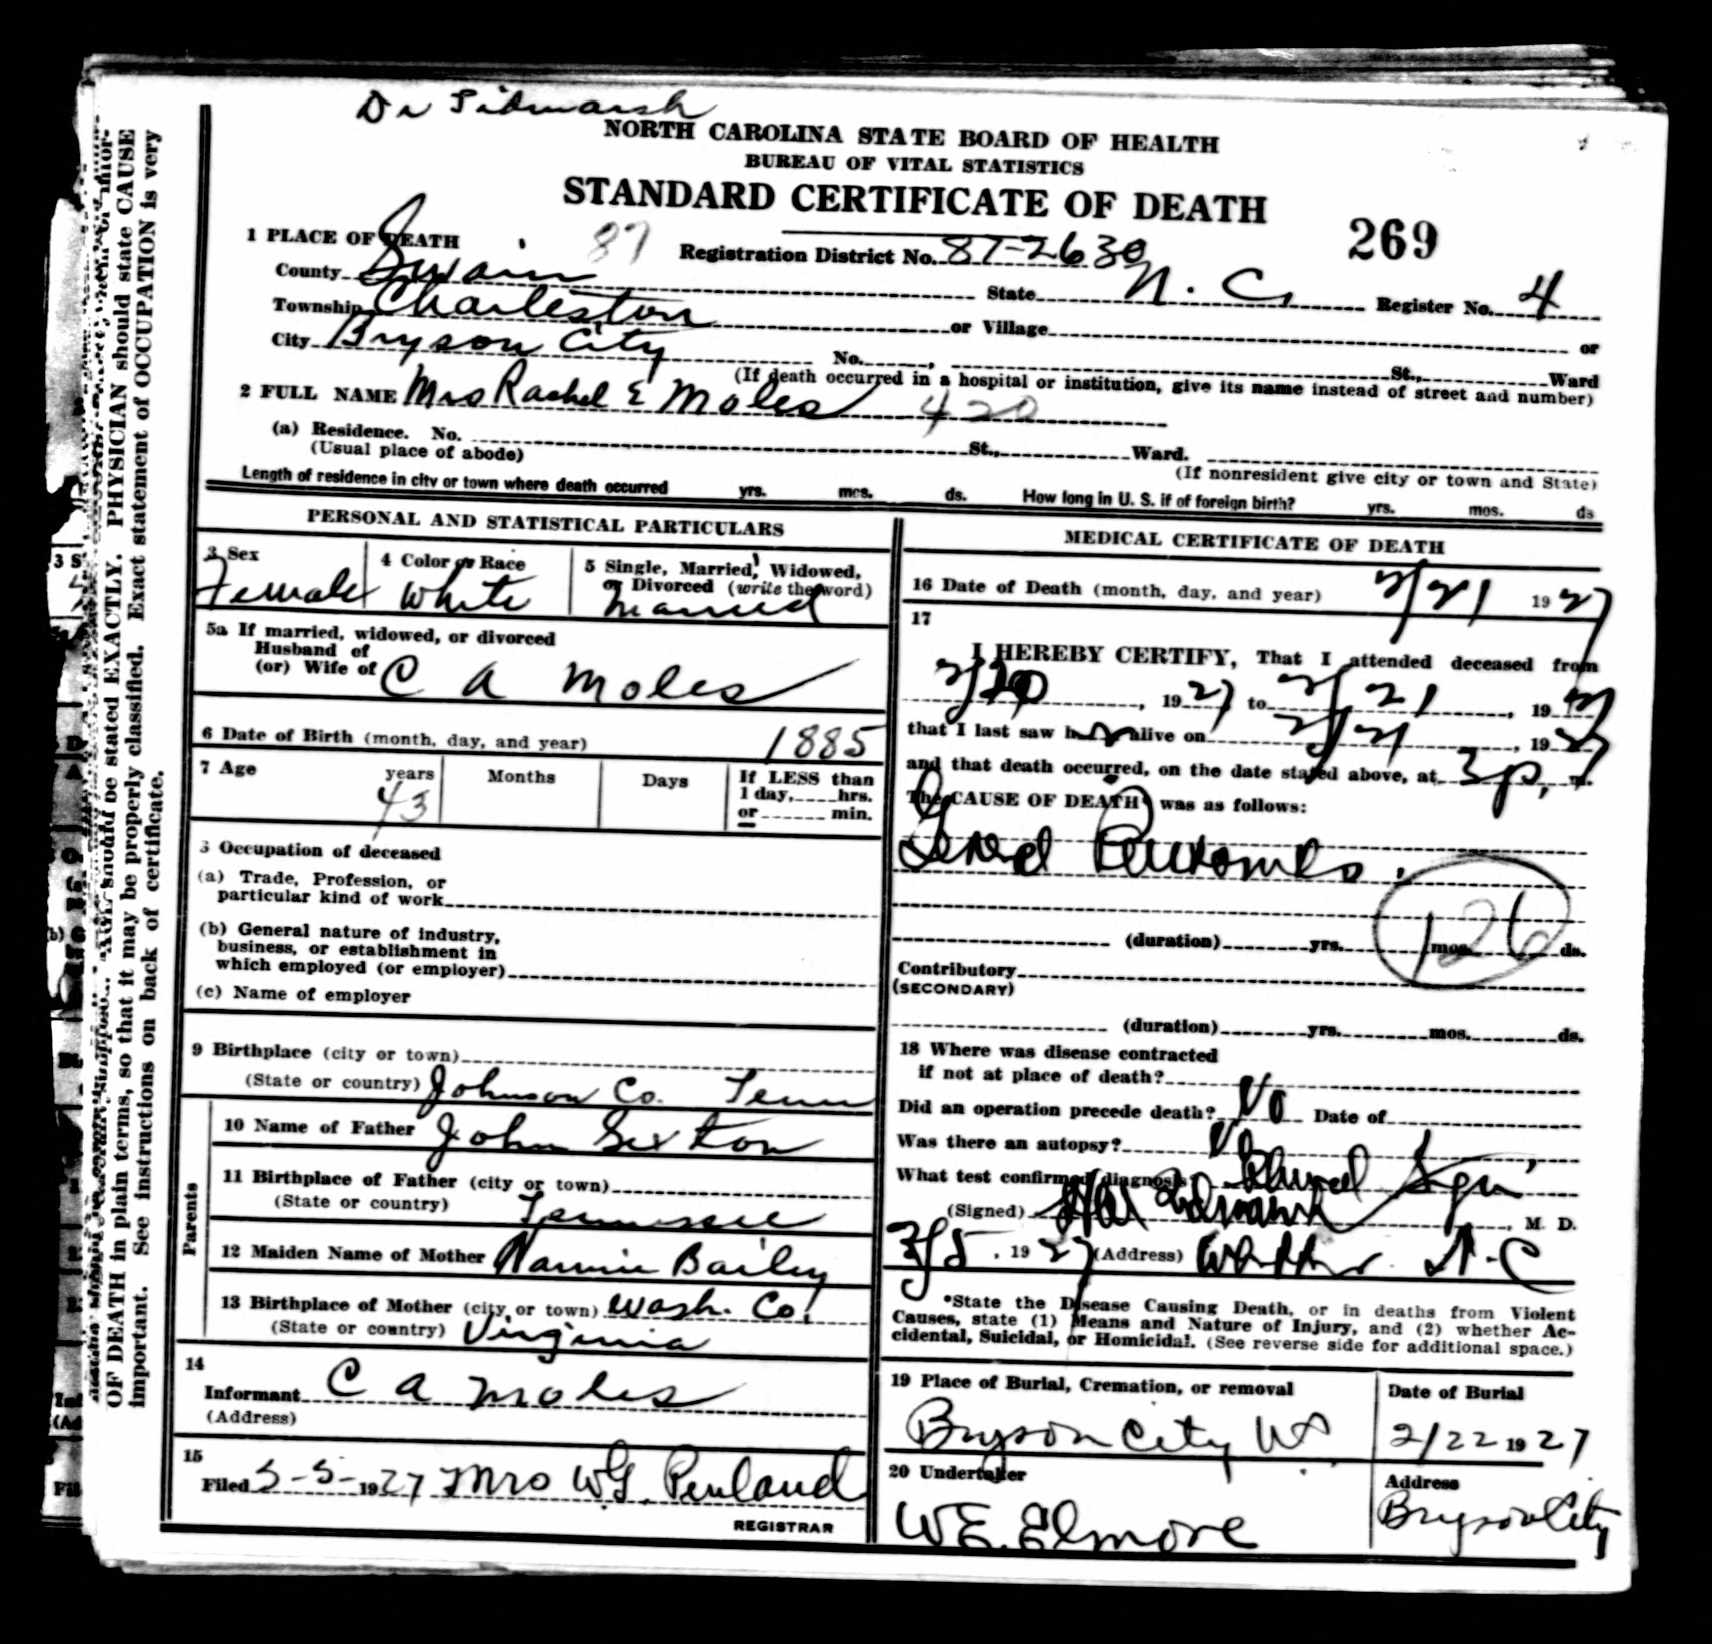 Dr Tidmarsh
NORTH CAROLINA STATE BOARD OF HEALTH
BUREAU OF VITAL STATISTICS
STANDARD CERTIFICATE OF DEATH
269
1 PLACE OF DEATH 87 Registration District No. 87-2630
County Swain State N. C. Register No. 4
Township Charleston or Village or
City Bryson City No. , St., Ward
(If death occurred in a hospital or institution, give its name instead of street and number)
2 FULL NAME Mrs Rachel E Moles 420
(a) Residence. No. St., Ward.
(Usual place of abode) (If nonresident give city or town and State)
Length of residence in city or town where death occurred yrs. mos. ds. How long in U. S. if of foreign birth? yrs. mos. ds
PERSONAL AND STATISTICAL PARTICULARS
3 Sex 4 Color or Race 5 Single, Married, Widowed,
or Divorced (write the word)
Female White Married
5a If married, widowed, or divorced
Husband of
(or) Wife of C A Moles
6 Date of Birth (month, day, and year) 1885
7 Age years Months Days If LESS than
1 day, hrs.
or min.
43
8 Occupation of deceased
(a) Trade, Profession, or
particular kind of work
(b) General nature of industry,
business, or establishment in
which employed (or employer)
(c) Name of employer
9 Birthplace (city or town)
(State or country) Johnson Co. Tenn
Parents
10 Name of Father John Sexton
11 Birthplace of Father (city or town)
(State or country) Tennessee
12 Maiden Name of Mother Nannie Bailey
13 Birthplace of Mother (city or town) Wash. Co.
(State or country) Virginia
14
Informant C A Moles
(Address)
15
Filed 5-5- 1927 Mrs W.G. Penland
REGISTRAR
MEDICAL CERTIFICATE OF DEATH
16 Date of Death (month, day, and year) 2/21 1927
17
I HEREBY CERTIFY, That I attended deceased from
2/20, 1927, to 2/21, 1927
that I last saw her alive on 2/21, 1927
and that death occurred, on the date stated above, at 3 p, m.
The CAUSE OF DEATH was as follows:
(duration) yrs. mos. ds.
126
Contributory
(SECONDARY)
(duration) yrs. mos. ds.
18 Where was disease contracted
if not at place of death?
Did an operation precede death? No Date of
Was there an autopsy?
What test confirmed diagnosis
(Signed) , M. D.
3/5, 1927 (Address) N.C
*State the Disease Causing Death, or in deaths from Violent
Causes, state (1) Means and Nature of Injury, and (2) whether Ac-
cidental, Suicidal, or Homicidal. (See reverse side for additional space.)
19 Place of Burial, Cremation, or removal Date of Burial
Bryson City 2/22 1927
20 Undertaker Address
W E. Elmore Bryson City
should be stated EXACTLY. PHYSICIAN should state CAUSE
OF DEATH in plain terms, so that it may be properly classified. Exact statement of OCCUPATION is very
important. See instructions on back of certificate.